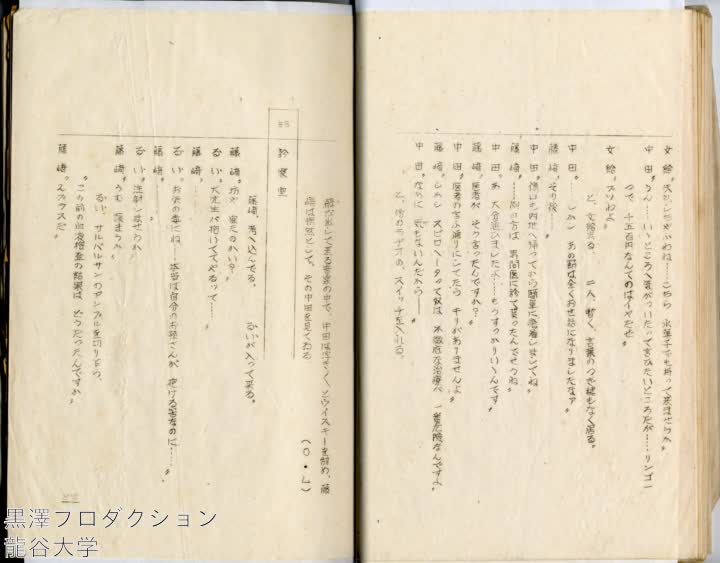 文絵〝大分しちゃかいわね……こちら 水菓子でも持って来ませうか〟
中田〝うん……いいところへ気がついたって言ひたいところだが……リンゴ一
つで、十五百円なんてのはイヤだぜ〟
文絵〝ブリわよ〟
と、文絵去る 二人、暫く、言葉のつき穂もなく居る。
中田〝……しかし あの節は全くお世話になりましたなァ〟
藤﨑〝その後……〟
中田〝傷口も内地へ帰ってから簡単に癒着しましてね〟
藤﨑〝……別の方は 専門医に診て貰ったんでせうね〟
中田〝あ、大分悪いましたよ……もうすっかりいいんです〟
藤﨑〝医者が そう言ったんですか？〟
中田〝医者の言ふ通りにしてたら キリがありませんよ〟
藤﨑〝しかし スピロヘータって奴は 不徹底な治療が 一番危険なんですよ〟
中田〝なあに 気もないんだから……〟
と、傍のラヂオの、スイッチを入れる。
流れ出して来る音楽の中で、中田は浮きうきとウイスキーを舐め、藤
﨑は憮然として、その中田を見てゐる
（O・L）
53
診察室
藤﨑、考へ込んでゐる。 るいが入って来る。
藤﨑〝坊や 寝たのかい？〟
るい〝大先生が抱いててやるって……〟
藤﨑〝……〟
るい〝お父の辛にね……本当は自分のお孫さんが 抱ける筈なのに……〟
藤﨑〝……〟
るい〝注射しませうか〟
藤﨑〝うむ 頼まうか〟
るい、サルバルサンのアンプルを切り乍ら、
〝この前の血液検査の結果は どうだったんですか〟
藤﨑〝２プラスだ〟
黒澤プロダクション
龍谷大学